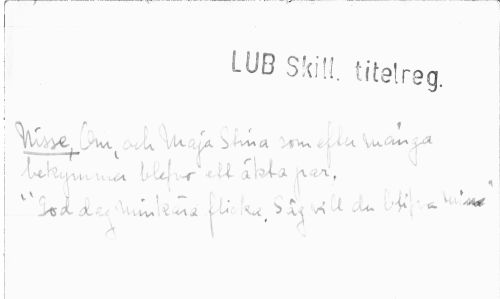 LUB Skill. titelreg.
Nisse, Om, och Maja Stina som efter många
bekymmer blefvo ett äkta par.
"God dag min kära flicka, Säg vill du blifva min"